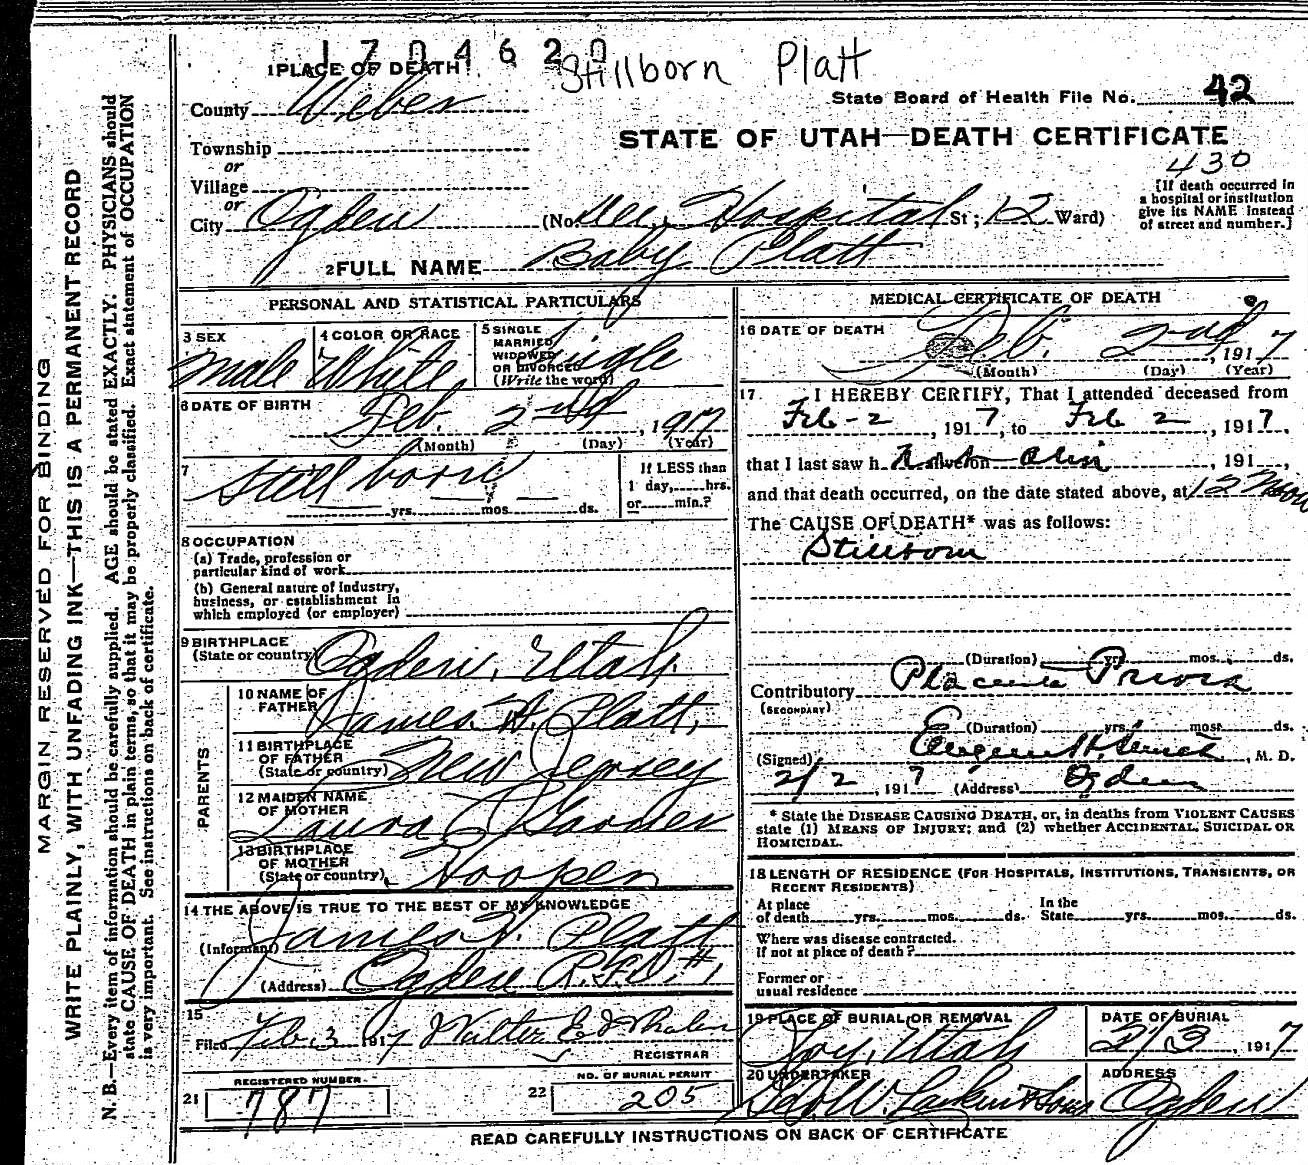 1704620
Stillborn Platt
1 PLACE OF DEATH
County Weber
State Board of Health File No. 42
STATE OF UTAH—DEATH CERTIFICATE
Township
or
Village
or
430
[If death occurred in
a hospital or institution
give its NAME instead
of street and number.]
City Ogden (No. Dee Hospital St; 12 Ward)
2 FULL NAME Baby Platt
PERSONAL AND STATISTICAL PARTICULARS
3 SEX
Male
4 COLOR OR RACE
White
5 SINGLE
MARRIED
WIDOWED
OR DIVORCED
(Write the word)
Single
6 DATE OF BIRTH
Feb. 2nd, 1917
(Month) (Day) (Year)
7
Still born
yrs. mos. ds.
If LESS than
1 day, hrs.
or min.?
8 OCCUPATION
(a) Trade, profession or
particular kind of work
(b) General nature of industry,
business, or establishment in
which employed (or employer)
9 BIRTHPLACE
(State or country)
Ogden, Utah.
PARENTS
10 NAME OF
FATHER
James H. Platt,
11 BIRTHPLACE
OF FATHER
(State or country)
New Jersey
12 MAIDEN NAME
OF MOTHER
Laura Garner
13 BIRTHPLACE
OF MOTHER
(State or country)
Hooper
14 THE ABOVE IS TRUE TO THE BEST OF MY KNOWLEDGE
(Informant) James H. Platt
(Address) Ogden R.F.D. #1
15
Filed Feb. 3 1917 Walter E. Whalen
REGISTRAR
21
REGISTERED NUMBER
787
22
NO. OF BURIAL PERMIT
205
MEDICAL CERTIFICATE OF DEATH
16 DATE OF DEATH
Feb. 2nd, 1917
(Month) (Day) (Year)
17. I HEREBY CERTIFY, That I attended deceased from
Feb-2, 1917, to Feb 2, 1917,
that I last saw h alive on , 191 ,
and that death occurred, on the date stated above, at 12 Noon
The CAUSE OF DEATH* was as follows:
Stillborn
(Duration) yrs. mos. ds.
Contributory Placenta Previa
(SECONDARY)
(Duration) yrs. mos. ds.
(Signed) Eugene H. Smith, M. D.
2/2, 1917 (Address) Ogden
* State the DISEASE CAUSING DEATH, or, in deaths from VIOLENT CAUSES
state (1) MEANS OF INJURY; and (2) whether ACCIDENTAL, SUICIDAL OR
HOMICIDAL.
18 LENGTH OF RESIDENCE (FOR HOSPITALS, INSTITUTIONS, TRANSIENTS, OR
RECENT RESIDENTS)
At place
of death yrs. mos. ds.
In the
State yrs. mos. ds.
Where was disease contracted.
if not at place of death?
Former or
usual residence
19 PLACE OF BURIAL OR REMOVAL
Roy, Utah
DATE OF BURIAL
2/3, 1917
20 UNDERTAKER
Geo W. Larkin & Sons
ADDRESS
Ogden
READ CAREFULLY INSTRUCTIONS ON BACK OF CERTIFICATE
MARGIN RESERVED FOR BINDING
WRITE PLAINLY, WITH UNFADING INK—THIS IS A PERMANENT RECORD
N. B.—Every item of information should be carefully supplied. AGE should be stated EXACTLY. PHYSICIANS should
state CAUSE OF DEATH in plain terms, so that it may be properly classified. Exact statement of OCCUPATION
is very important. See instructions on back of certificate.